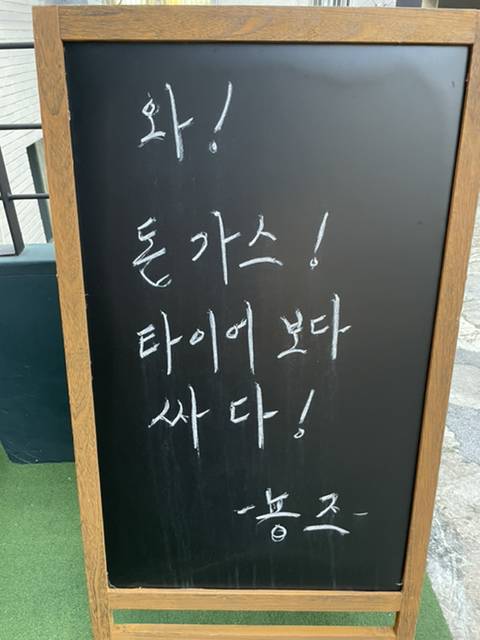 와!
돈가스!
타이어 보다
싸다!
-용즈-